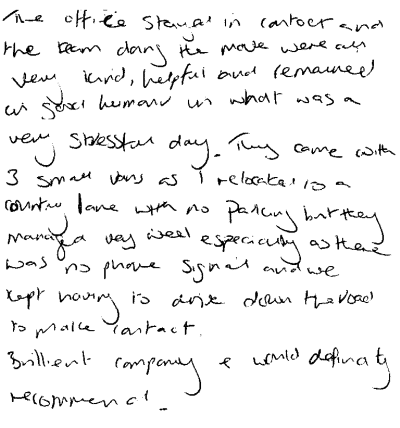 The office stayed in contact and
the team doing the move were all
very kind, helpful and remained
in good humour in what was a
very stressful day. They came with
3 small vans as I relocated to a
country lane with no parking but they
managed very well especially as there
was no phone signal and we
kept having to drive down the road
to make contact.
Brilliant company & would definitely
recommend.